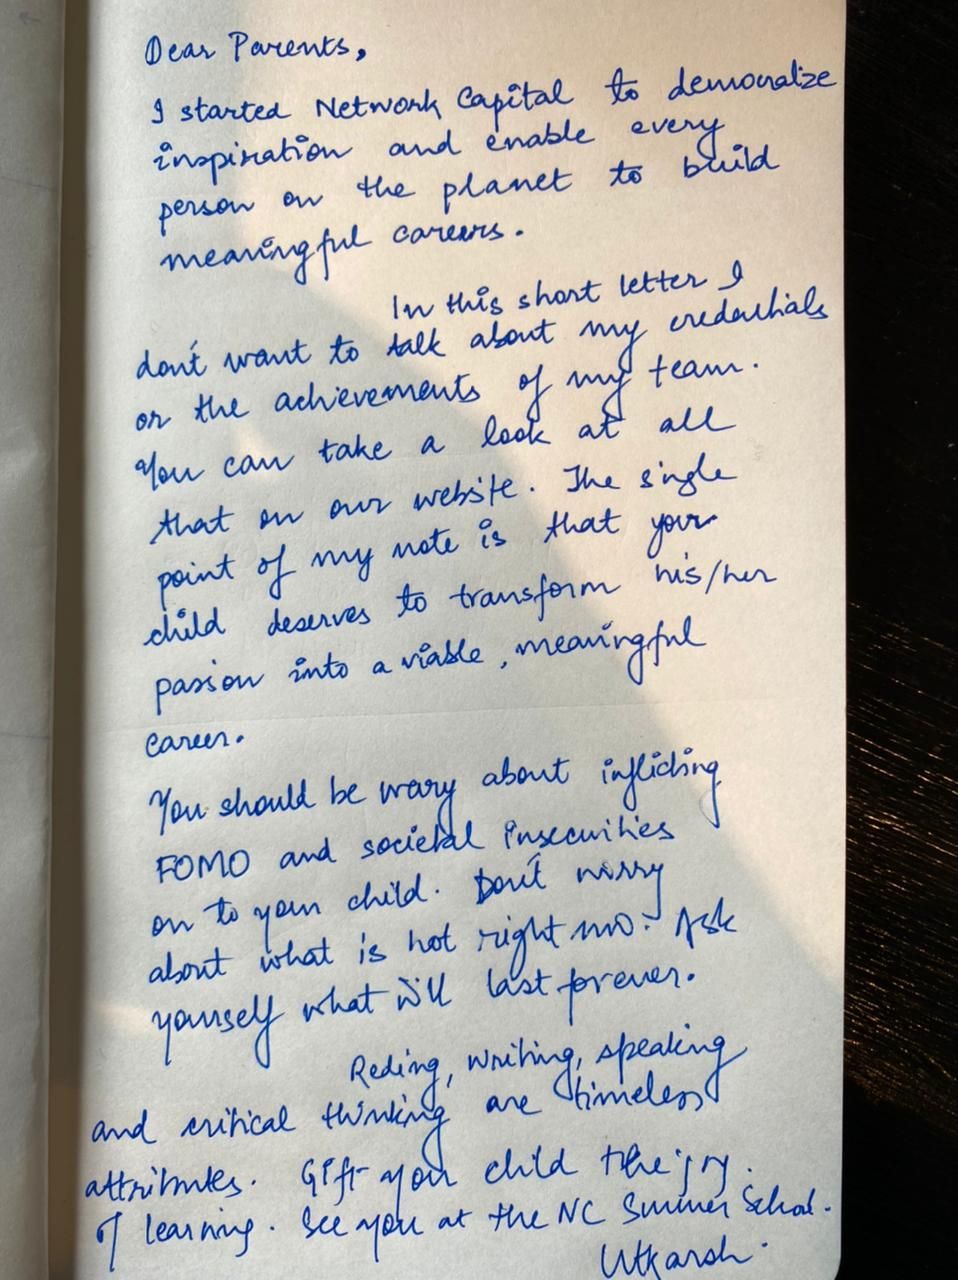 Dear Parents,
I started Network Capital to democratize
inspiration and enable every
person on the planet to build
meaningful careers.
In this short letter I
don't want to talk about my credentials
or the achievements of my team.
You can take a look at all
that on our website. The single
point of my note is that your
child deserves to transform his/her
passion into a viable, meaningful
career.
You should be wary about inflicting
FOMO and societal insecurities
on to your child. Don't worry
about what is hot right now. Ask
yourself what will last forever.
Reding, writing, speaking
and critical thinking are timeless
attributes. Gift you child the joy
of learning. See you at the NC Summer School.
Utkarsh.